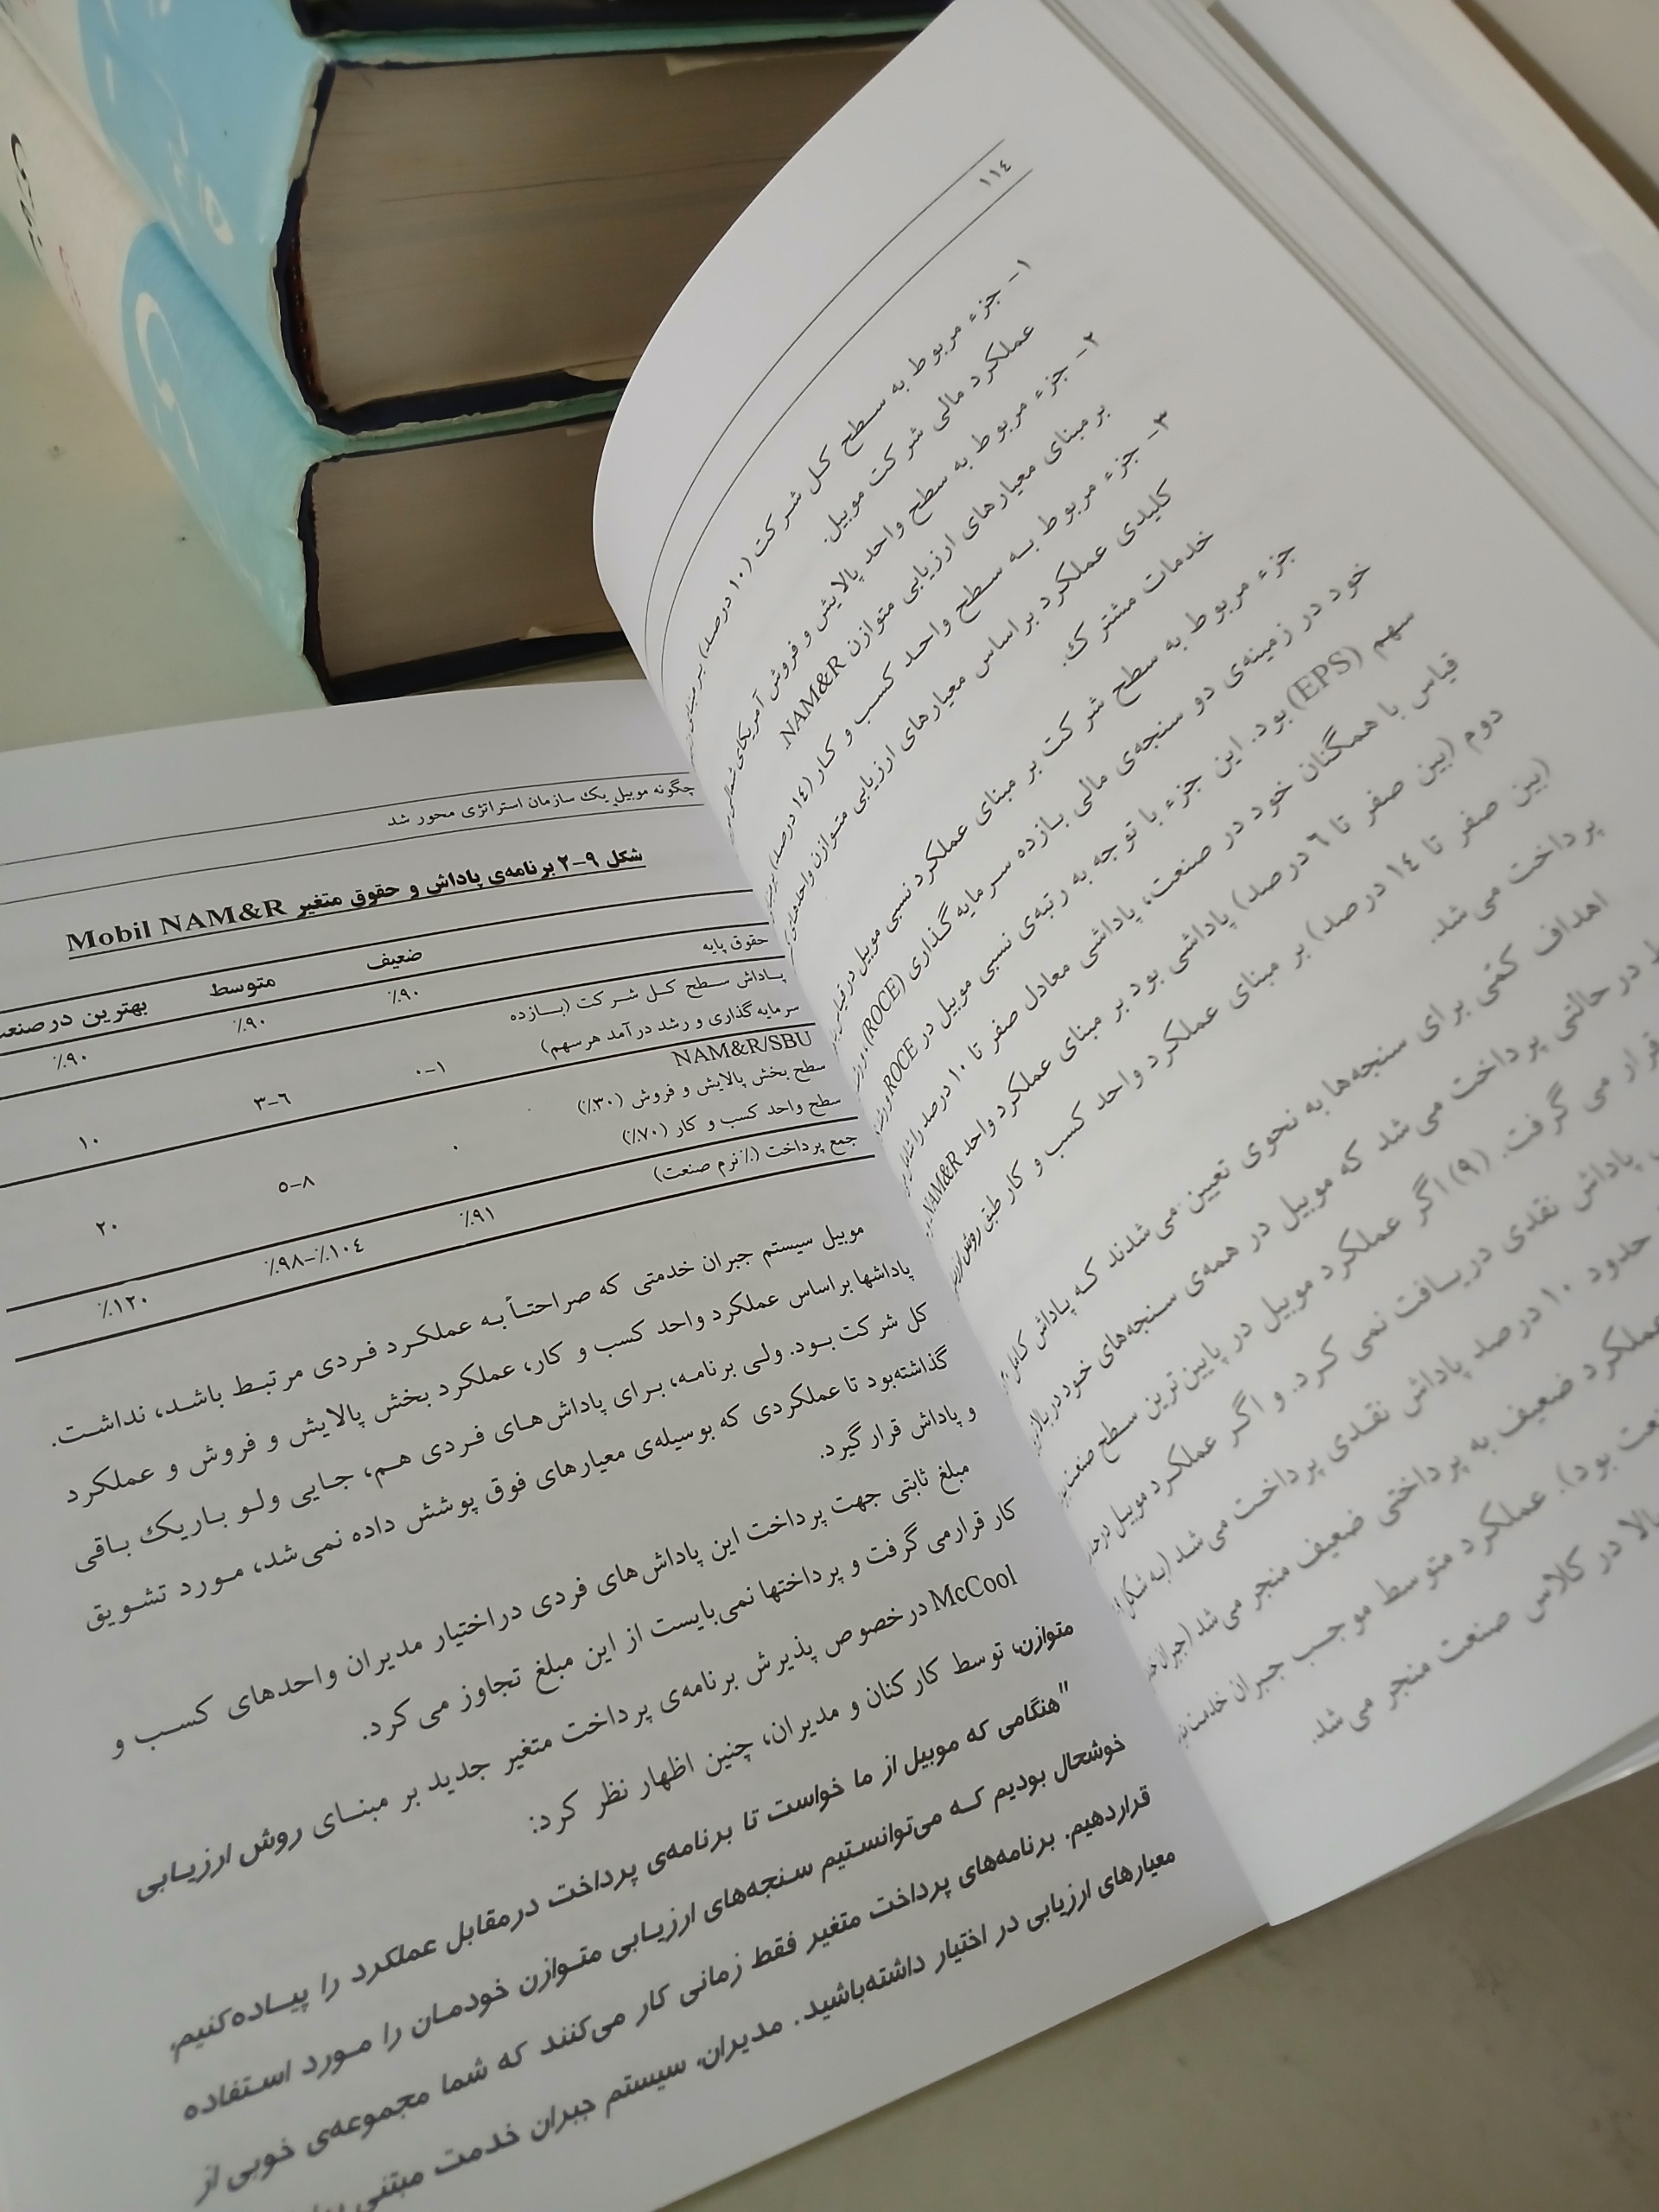 ١١٤
١- جزء مربوط به سطح کل شرکت (١٠ درصد) بر مبنای
عملکرد مالی شرکت موبیل.
٢- جزء مربوط به سطح واحد پالایش و فروش آمریکای شمالی
بر مبنای معیارهای ارزیابی متوازن NAM&R.
٣- جزء مربوط به سطح واحد کسب و کار (١٤ درصد)
کلیدی عملکرد براساس معیارهای ارزیابی متوازن واحدهای
خدمات مشترک.
جزء مربوط به سطح شرکت بر مبنای عملکرد نسبی موبیل در قیاس
خود در زمینه‌ی دو سنجه‌ی مالی بازده سرمایه گذاری (ROCE)،
سهم (EPS) بود. این جزء با توجه به رتبه‌ی نسبی موبیل در ROCE و رشد
قیاس با همگنان خود در صنعت، پاداشی معادل صفر تا ١٠ درصد را شامل
دوم (بین صفر تا ٦ درصد) پاداشی بود بر مبنای عملکرد واحد NAM&R
(بین صفر تا ١٤ درصد) بر مبنای عملکرد واحد کسب و کار طبق روش
پرداخت می‌شد.
اهداف کمّی برای سنجه‌ها به نحوی تعیین می‌شدند که پاداش کامل
در حالتی پرداخت می‌شد که موبیل در همه‌ی سنجه‌های خود در
قرار می گرفت. (٩) اگر عملکرد موبیل در پایین‌ترین سطح صنعت
پاداش نقدی دریافت نمی کرد. و اگر عملکرد موبیل در
حدود ١٠ درصد پاداش نقدی پرداخت می‌شد (به شکل
عملکرد ضعیف به پرداختی ضعیف منجر می‌شد (جبران
بود). عملکرد متوسط موجب جبران خدمات
در کلاس صنعت منجر می‌شد.
چگونه موبیل یک سازمان استراتژی محور شد
شکل ٩-٢ برنامه‌ی پاداش و حقوق متغیر Mobil NAM&R
ضعیف متوسط بهترین در صنعت
حقوق پایه ٩٠٪ ٩٠٪ ٩٠٪
پاداش سطح کل شرکت (بازده
سرمایه گذاری و رشد درآمد هر سهم) ٠-١ ٣-٦ ١٠
NAM&R/SBU
سطح بخش پالایش و فروش (٣٠٪)
سطح واحد کسب و کار (٧٠٪) ٠ ٥-٨ ٢٠
جمع پرداخت (٪ نرم صنعت) ٩١٪ ٩٨٪-١٠٤٪ ١٢٠٪
موبیل سیستم جبران خدمتی که صراحتاً به عملکرد فردی مرتبط باشد، نداشت.
پاداشها براساس عملکرد واحد کسب و کار، عملکرد بخش پالایش و فروش و عملکرد
کل شرکت بود. ولی برنامه، برای پاداش‌های فردی هم، جایی ولو باریک باقی
گذاشته‌بود تا عملکردی که بوسیله‌ی معیارهای فوق پوشش داده نمی‌شد، مورد تشویق
و پاداش قرار گیرد.
مبلغ ثابتی جهت پرداخت این پاداش‌های فردی دراختیار مدیران واحدهای کسب و
کار قرارمی گرفت و پرداختها نمی‌بایست از این مبلغ تجاوز می کرد.
McCool در خصوص پذیرش برنامه‌ی پرداخت متغیر جدید بر مبنای روش ارزیابی
متوازن، توسط کارکنان و مدیران، چنین اظهار نظر کرد:
"هنگامی که موبیل از ما خواست تا برنامه‌ی پرداخت درمقابل عملکرد را پیاده‌کنیم،
خوشحال بودیم که می‌توانستیم سنجه‌های ارزیابی متوازن خودمان را مورد استفاده
قراردهیم. برنامه‌های پرداخت متغیر فقط زمانی کار می‌کنند که شما مجموعه‌ی خوبی از
معیارهای ارزیابی در اختیار داشته‌باشید. مدیران، سیستم جبران خدمت مبتنی